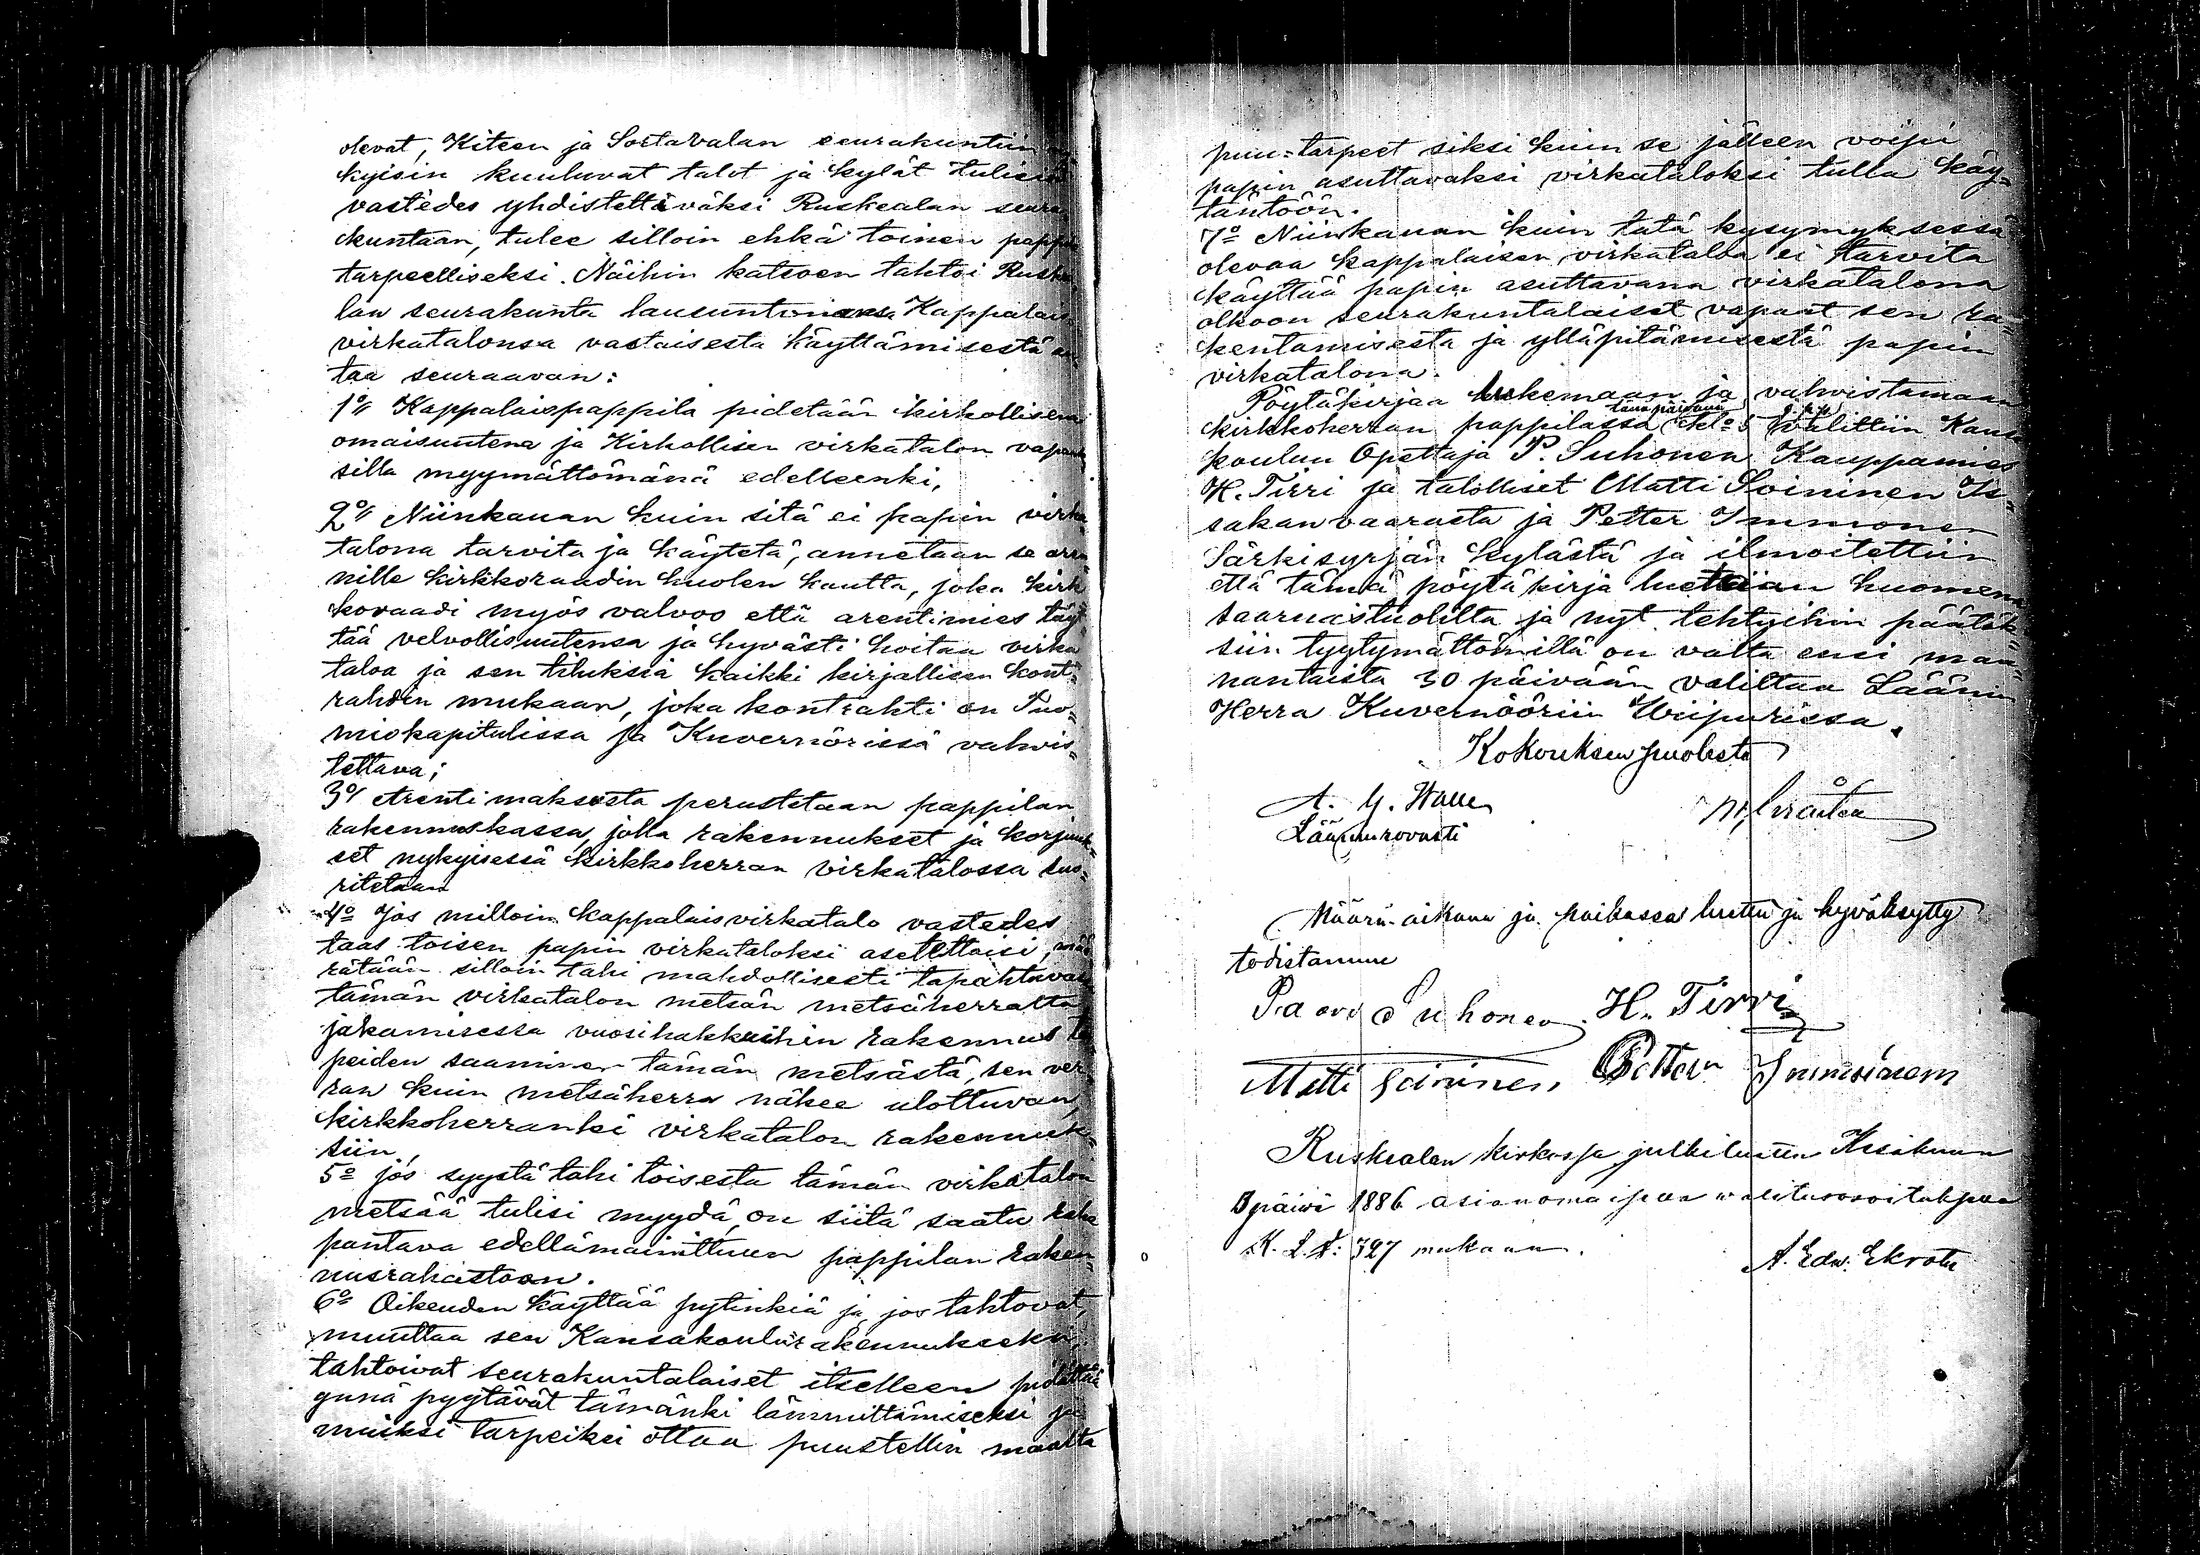 olevat, Kiteen ja Sortavalan seurakuntiin
kyisin kuuluvat talot ja kylät tulisi
vastedes yhdistettäväksi Ruskealan seura
kuntaan, tulee silloin ehkä toinen pappi
tarpeelliseksi. Näihin katsoen tahtoi Ruske
lan seurakunta lausuntonansa Kappalais
virkatalonsa vastaisesta käyttämisestä an
taa seuraavan:
1o/ Kappalaispappila pidetään kirkollisena
omaisuutena ja Kirkollisen virkatalon vapauk
silla myymättömänä edelleenki,
2o/ Niinkauan kuin sitä ei papin virka
talona tarvita ja käytetä, annetaan se aren
nille kirkkoraadin huolen kautta, joka kirk
koraadi myös valvoo että arentimies täyt
tää velvollisuutensa ja hyvästi hoitaa virka
taloa ja sen tiluksia kaikki kirjallisen kont-
rahdin mukaan, joka kontrahti on Tuo-
miokapitulissa ja Kuvernörissä vahvis-
tettava;
3o/ Arentimaksusta perustetaan pappilan
rakennuskassa, jolla rakennukset ja korjauk-
set nykyisessä kirkkoherran virkatalossa suo-
ritetaan
4o Jos milloin kappalaisvirkatalo vastedes
taas toisen papin virkataloksi asetettaisi, mää
rätään silloin tahi mahdollisesti tapahtuvas
tämän virkatalon metsän metsäherralta
jakamisessa vuosihakkuihin rakennus ta
peiden saaminen tämän metsästä, sen ver
ran kuin metsäherra näkee ulottuvan,
kirkkoherranki virkatalon rakennuk-
siin,
5o jos syystä tahi toisesta tämän virkatalon
metsää tulisi myydä, on siitä saatu raha
pantava edellämainittuun pappilan raken-
nusrahastoon.
6o Oikeuden käyttää pytinkiä ja jos tahtovat,
muuttaa sen Kansakoulurakennukseksi,
tahtoivat seurakuntalaiset itselleen pidättää
ynnä pyytävät tämänki lämmittämiseksi ja
muiksi tarpeiksi ottaa puustellin maalta
puu-tarpeet siksi kuin se jälleen voipi
papin asuttavaksi virkataloksi tulla käy-
täntöön.
7o Niinkauan kuin tätä kysymyksessä
olevaa kappalaisen virkataloa ei tarvita
käyttää papin asuttavana virkatalona
olkoon seurakuntalaiset vapaat sen ra-
kentamisesta ja ylläpitämisestä papin
virkatalona.
Pöytäkirjaa lukemaan ja vahvistamaan
kirkkoherran pappilassa tänäpäivänä klo 5 j.p.p. valittiin Kansa
koulun Opettaja P. Suhonen Kauppamies
H. Tirri ja talolliset Matti Soininen Ii-
sakanvaarasta ja Petter Immonen
Särkisyrjän kylästä ja ilmoitettiin
että tämä pöytäkirja luetaan huomena
saarnastuolilta ja nyt tehtyihin päätök-
siin tyytymättömillä on valta ensi maa-
nantaista 30 päivään valittaa Läänin
Herra Kuvernööriin Wiipurissa.
Kokouksen puolesta
A. G. Walle
Lääninrovasti
Määrä-aikana ja paikassa luettu ja hyväksytty
todistamme
Paavo Suhonen H. Tirri
Matti Soininen, Petter Immoinem
Ruskealan kirkossa julkiluettu Kesäkuun
päivä 1886 asianomaisessa walitusosoituksessa
K. L. §: 327 mukaan.
A. Edw. Ekroth